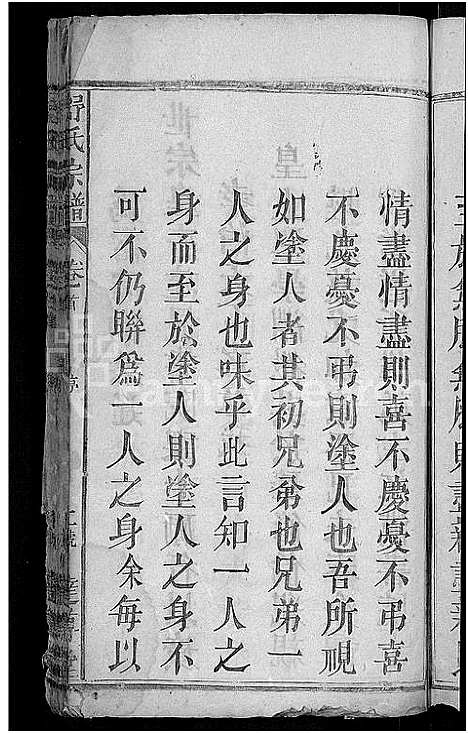 情盡情盡則喜不慶憂不弔喜
不慶憂不弔則塗人也吾所視
如塗人者其初兄弟也兄弟一
人之身也味乎此言知一人之
身而至於塗人則塗人之身不
可不仍聯為一人之身余每以
舒氏宗譜 卷首